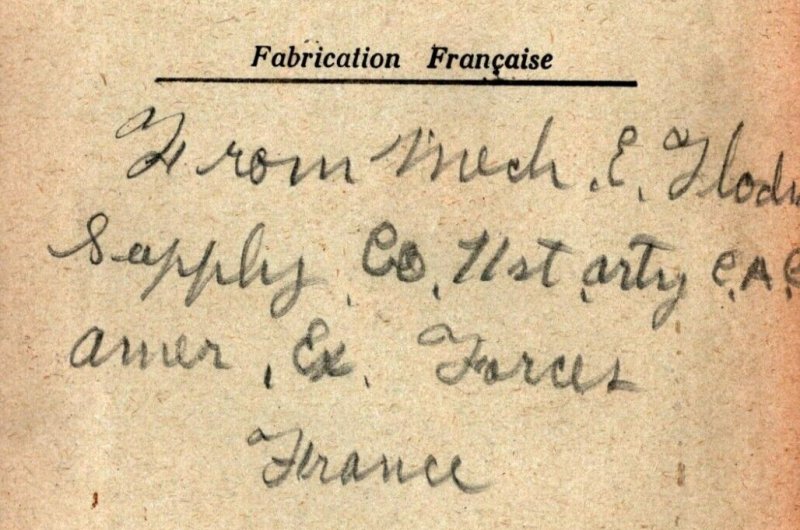 Fabrication Française
From Mech. E. 
Supply Co. 71st arty C.A.C
Amer. Ex. Forces
France